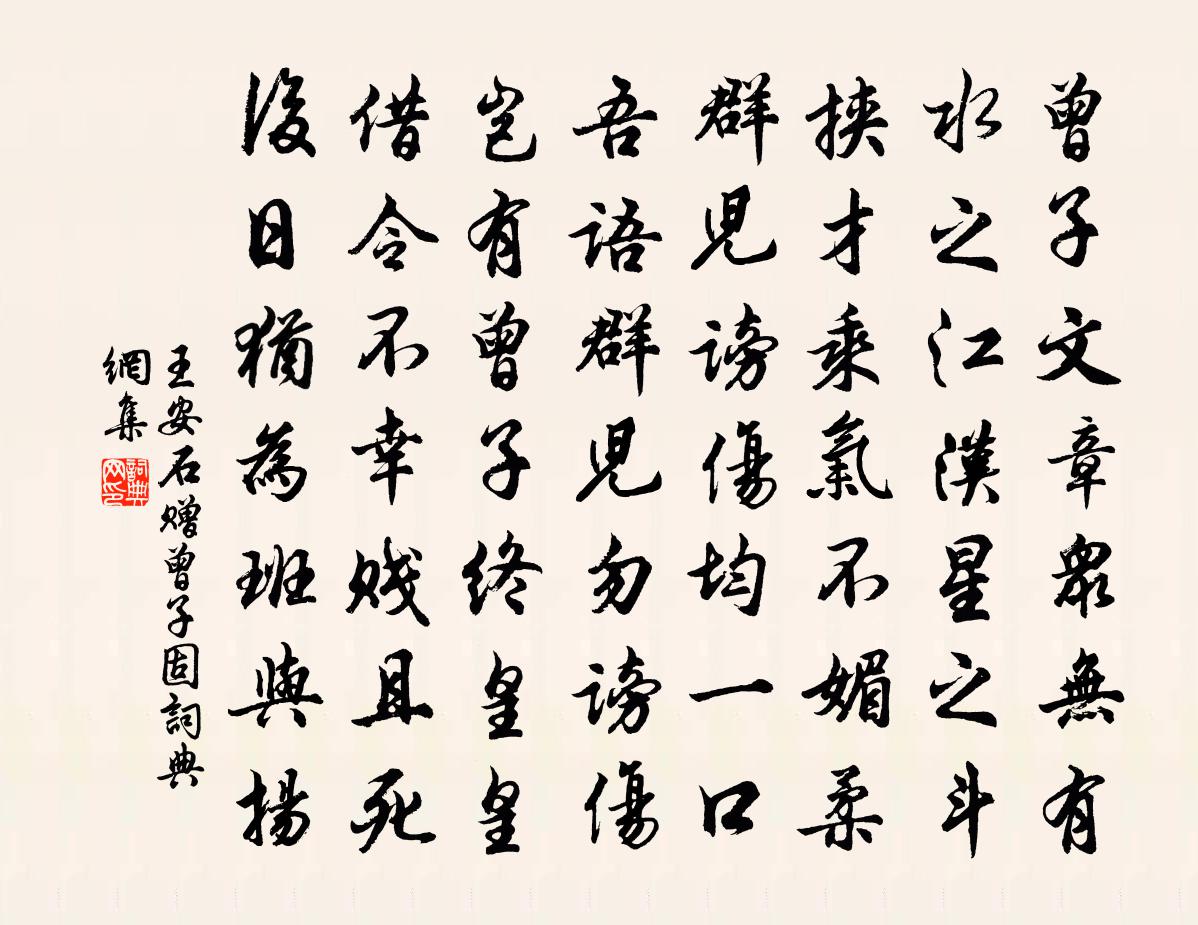 曾子文章眾無有
水之江漢星之斗
挾才乘氣不媚柔
群兒謗傷均一口
吾語群兒勿謗傷
豈有曾子終皇皇
借令不幸賤且死
後日猶為班與揚
王安石贈曾子固詞典
網集
詞典
网印